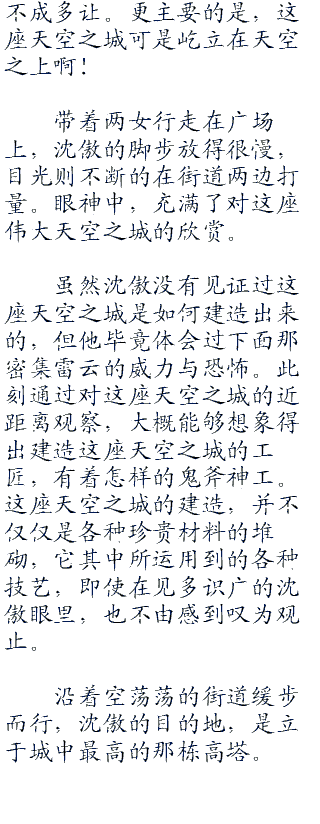 不成多让。更主要的是，这
座天空之城可是屹立在天空
之上啊！
带着两女行走在广场
上，沈傲的脚步放得很慢，
目光则不断的在街道两边打
量。眼神中，充满了对这座
伟大天空之城的欣赏。
虽然沈傲没有见证过这
座天空之城是如何建造出来
的，但他毕竟体会过下面那
密集雷云的威力与恐怖。此
刻通过对这座天空之城的近
距离观察，大概能够想象得
出建造这座天空之城的工
匠，有着怎样的鬼斧神工。
这座天空之城的建造，并不
仅仅是各种珍贵材料的堆
砌，它其中所运用到的各种
技艺，即使在见多识广的沈
傲眼里，也不由感到叹为观
止。
沿着空荡荡的街道缓步
而行，沈傲的目的地，是立
于城中最高的那栋高塔。